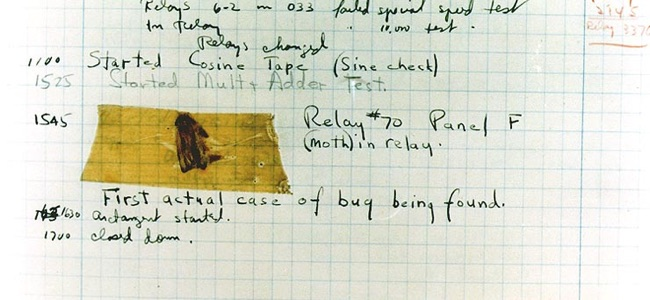 Relays 6-2 in 033 failed special speed test
In Relay " 10,000 test.
Relays changed
1100 Started Cosine Tape (Sine check)
1525 Started Mult + Adder Test.
1545 Relay #70 Panel F
(moth) in relay.
First actual case of bug being found.
1630 arctangent started.
1700 closed down.
2145
Relay 3370